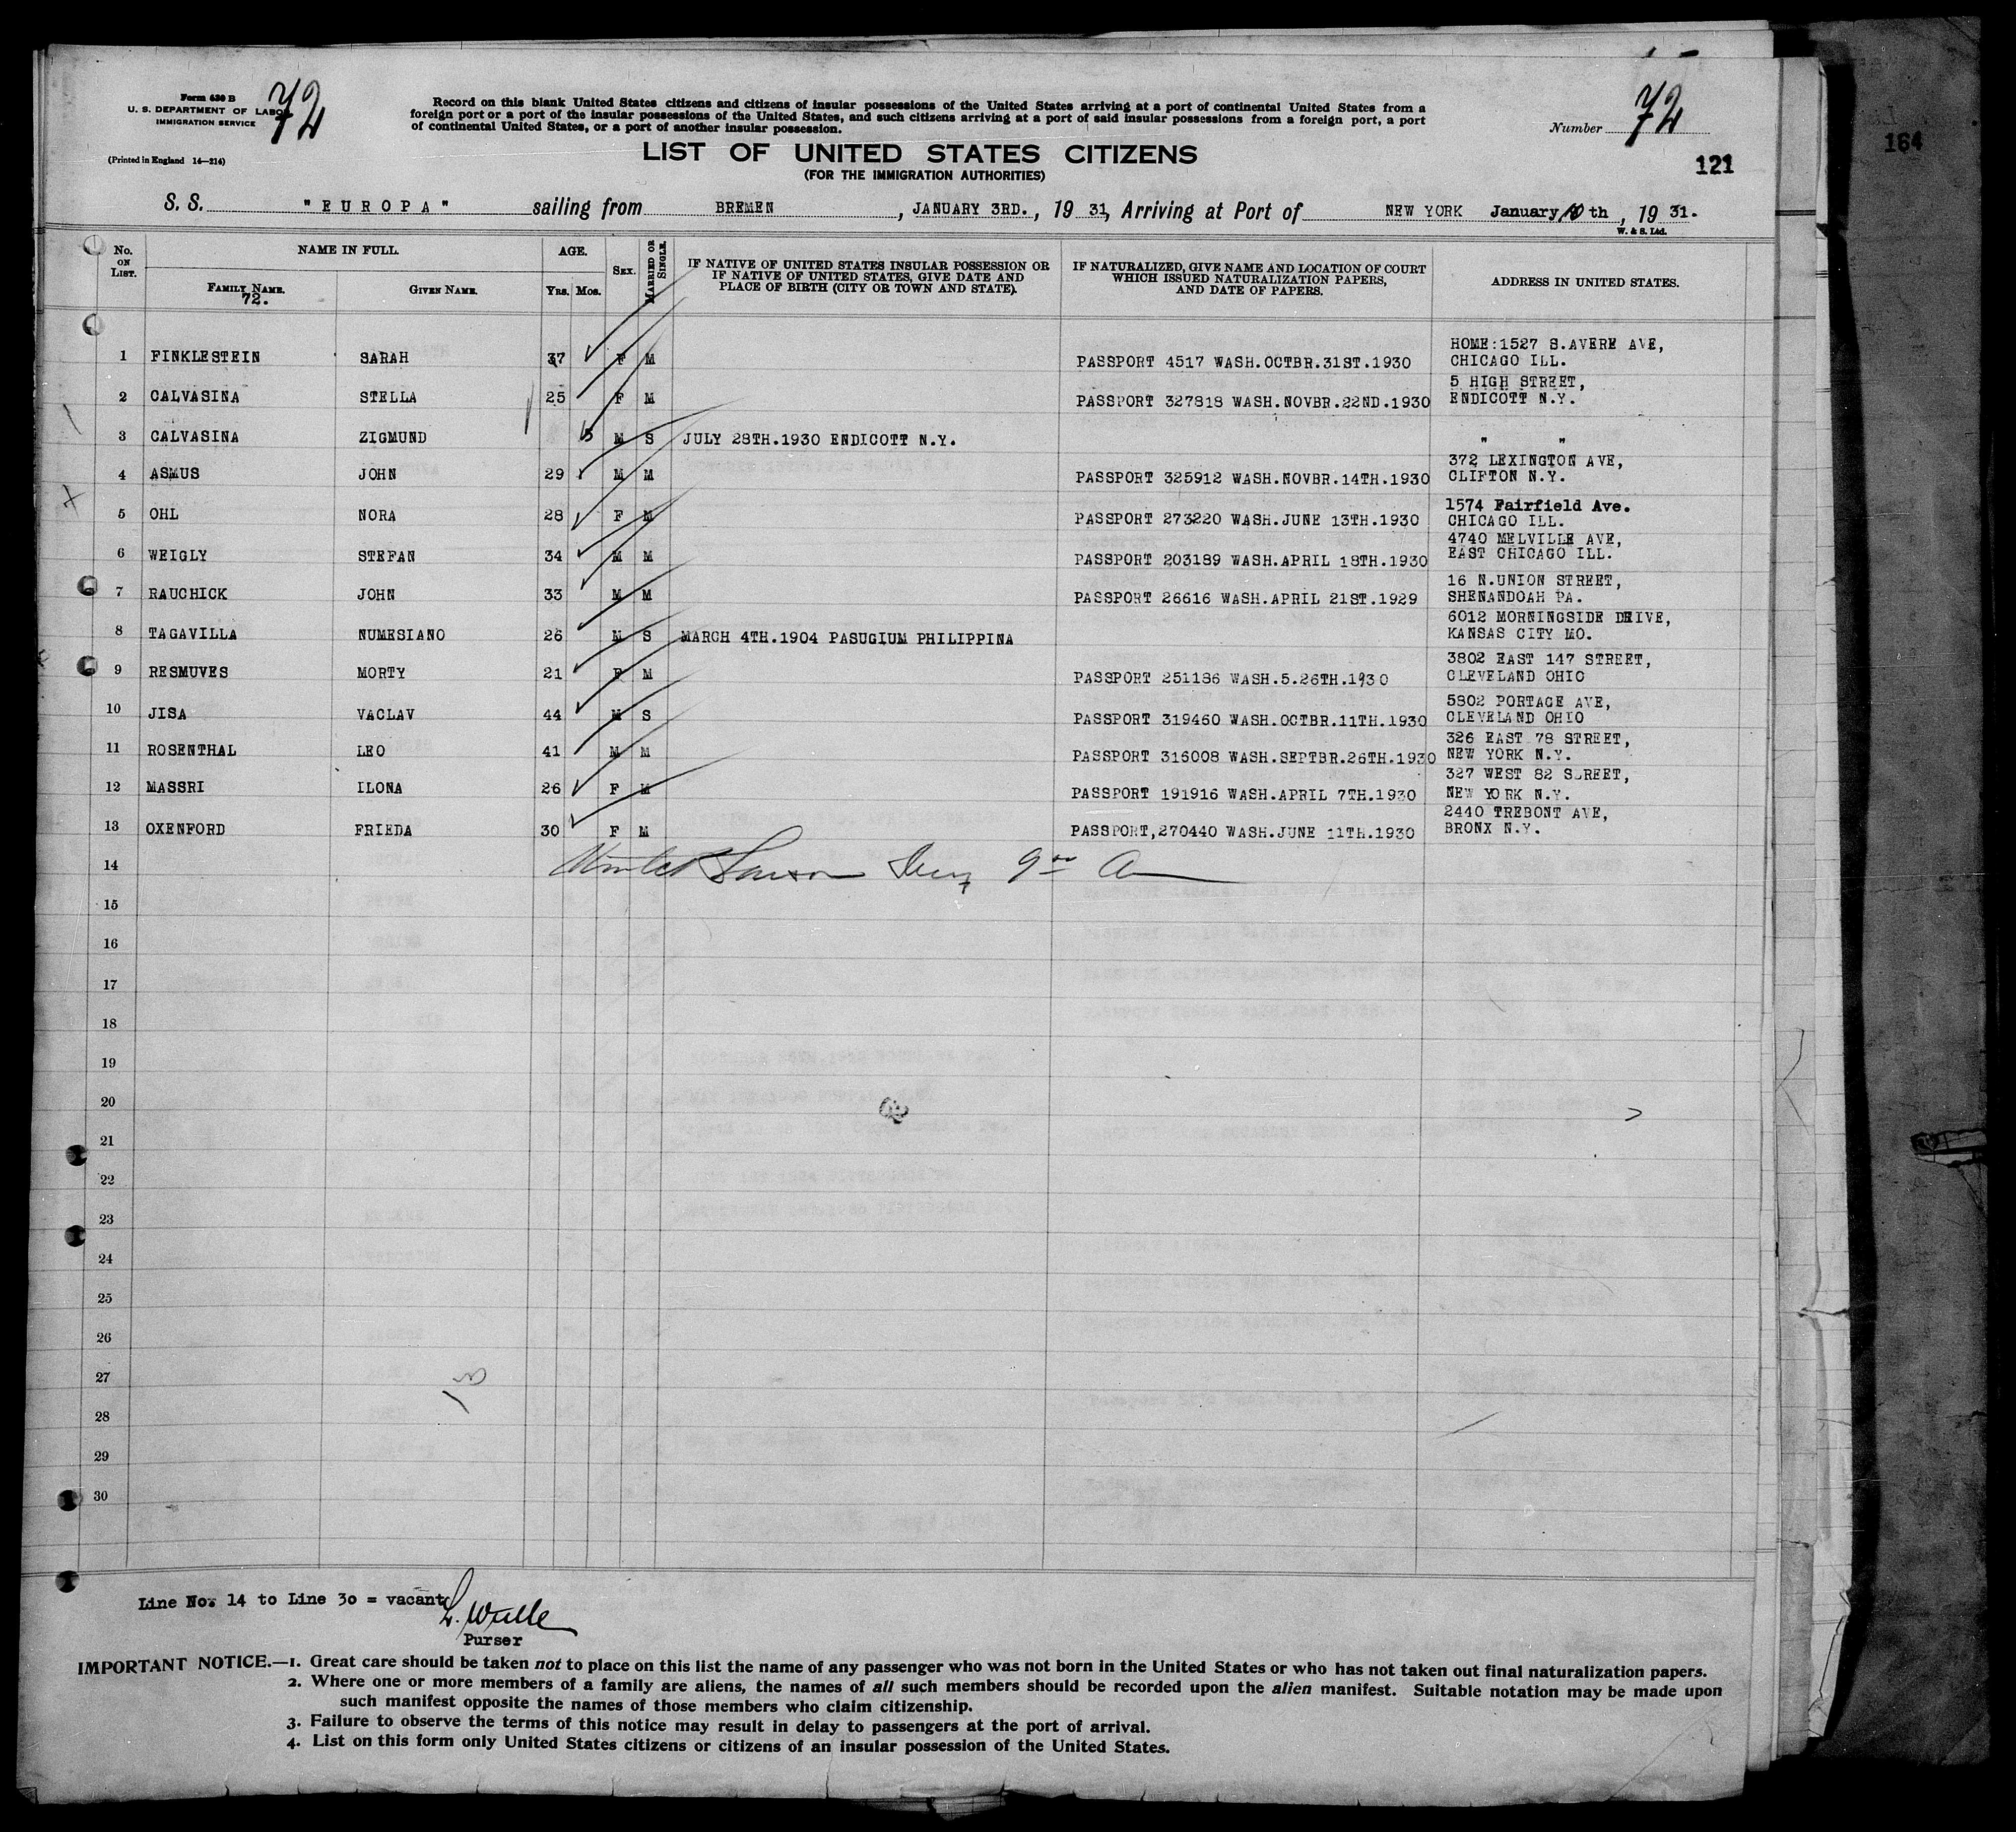 Form 630 B
U. S. DEPARTMENT OF LABOR
IMMIGRATION SERVICE
72
(Printed in England 14—214)
Record on this blank United States citizens and citizens of insular possessions of the United States arriving at a port of continental United States from a
foreign port or a port of the insular possessions of the United States, and such citizens arriving at a port of said insular possessions from a foreign port, a port
of continental United States, or a port of another insular possession.
Number 72
LIST OF UNITED STATES CITIZENS
(FOR THE IMMIGRATION AUTHORITIES)
121
164
S. S. "EUROPA" sailing from BREMEN, JANUARY 3RD., 19 31, Arriving at Port of NEW YORK January 10 th, 19 31.
W. & S. Ltd.
No. ON LIST. NAME IN FULL. AGE. SEX. MARRIED OR SINGLE. IF NATIVE OF UNITED STATES INSULAR POSSESSION OR IF NATIVE OF UNITED STATES, GIVE DATE AND PLACE OF BIRTH (CITY OR TOWN AND STATE). IF NATURALIZED, GIVE NAME AND LOCATION OF COURT WHICH ISSUED NATURALIZATION PAPERS, AND DATE OF PAPERS. ADDRESS IN UNITED STATES.
FAMILY NAME. GIVEN NAME. YRS. MOS.
72.
1 FINKLESTEIN SARAH 37 F M PASSPORT 4517 WASH.OCTBR.31ST.1930 HOME:1527 S.AVERE AVE, CHICAGO ILL.
2 CALVASINA STELLA 25 F M PASSPORT 327818 WASH.NOVBR.22ND.1930 5 HIGH STREET, ENDICOTT N.Y.
3 CALVASINA ZIGMUND 5 M S JULY 28TH.1930 ENDICOTT N.Y. " "
4 ASMUS JOHN 29 M M PASSPORT 325912 WASH.NOVBR.14TH.1930 372 LEXINGTON AVE, CLIFTON N.Y.
5 OHL NORA 28 F M PASSPORT 273220 WASH.JUNE 13TH.1930 1574 Fairfield Ave. CHICAGO ILL.
6 WEIGLY STEFAN 34 M M PASSPORT 203189 WASH.APRIL 18TH.1930 4740 MELVILLE AVE, EAST CHICAGO ILL.
7 RAUCHICK JOHN 33 M M PASSPORT 26616 WASH.APRIL 21ST.1929 16 N.UNION STREET, SHENANDOAH PA.
8 TAGAVILLA NUMESIANO 26 M S MARCH 4TH.1904 PASUGIUM PHILIPPINA 6012 MORNINGSIDE DRIVE, KANSAS CITY MO.
9 RESMUVES MORTY 21 F M PASSPORT 251186 WASH.5.26TH.1930 3802 EAST 147 STREET, CLEVELAND OHIO
10 JISA VACLAV 44 M S PASSPORT 319460 WASH.OCTBR.11TH.1930 5802 PORTAGE AVE, CLEVELAND OHIO
11 ROSENTHAL LEO 41 M M PASSPORT 316008 WASH.SEPTBR.26TH.1930 326 EAST 78 STREET, NEW YORK N.Y.
12 MASSRI ILONA 26 F M PASSPORT 191916 WASH.APRIL 7TH.1930 327 WEST 82 STREET, NEW YORK N.Y.
13 OXENFORD FRIEDA 30 F M PASSPORT,270440 WASH.JUNE 11TH.1930 2440 TREBONT AVE, BRONX N.Y.
14
15
16
17
18
19
20
21
22
23
24
25
26
27
28
29
30
Line No. 14 to Line 30 = vacant
L. Wulle
Purser
IMPORTANT NOTICE.—1. Great care should be taken not to place on this list the name of any passenger who was not born in the United States or who has not taken out final naturalization papers.
2. Where one or more members of a family are aliens, the names of all such members should be recorded upon the alien manifest. Suitable notation may be made upon
such manifest opposite the names of those members who claim citizenship.
3. Failure to observe the terms of this notice may result in delay to passengers at the port of arrival.
4. List on this form only United States citizens or citizens of an insular possession of the United States.